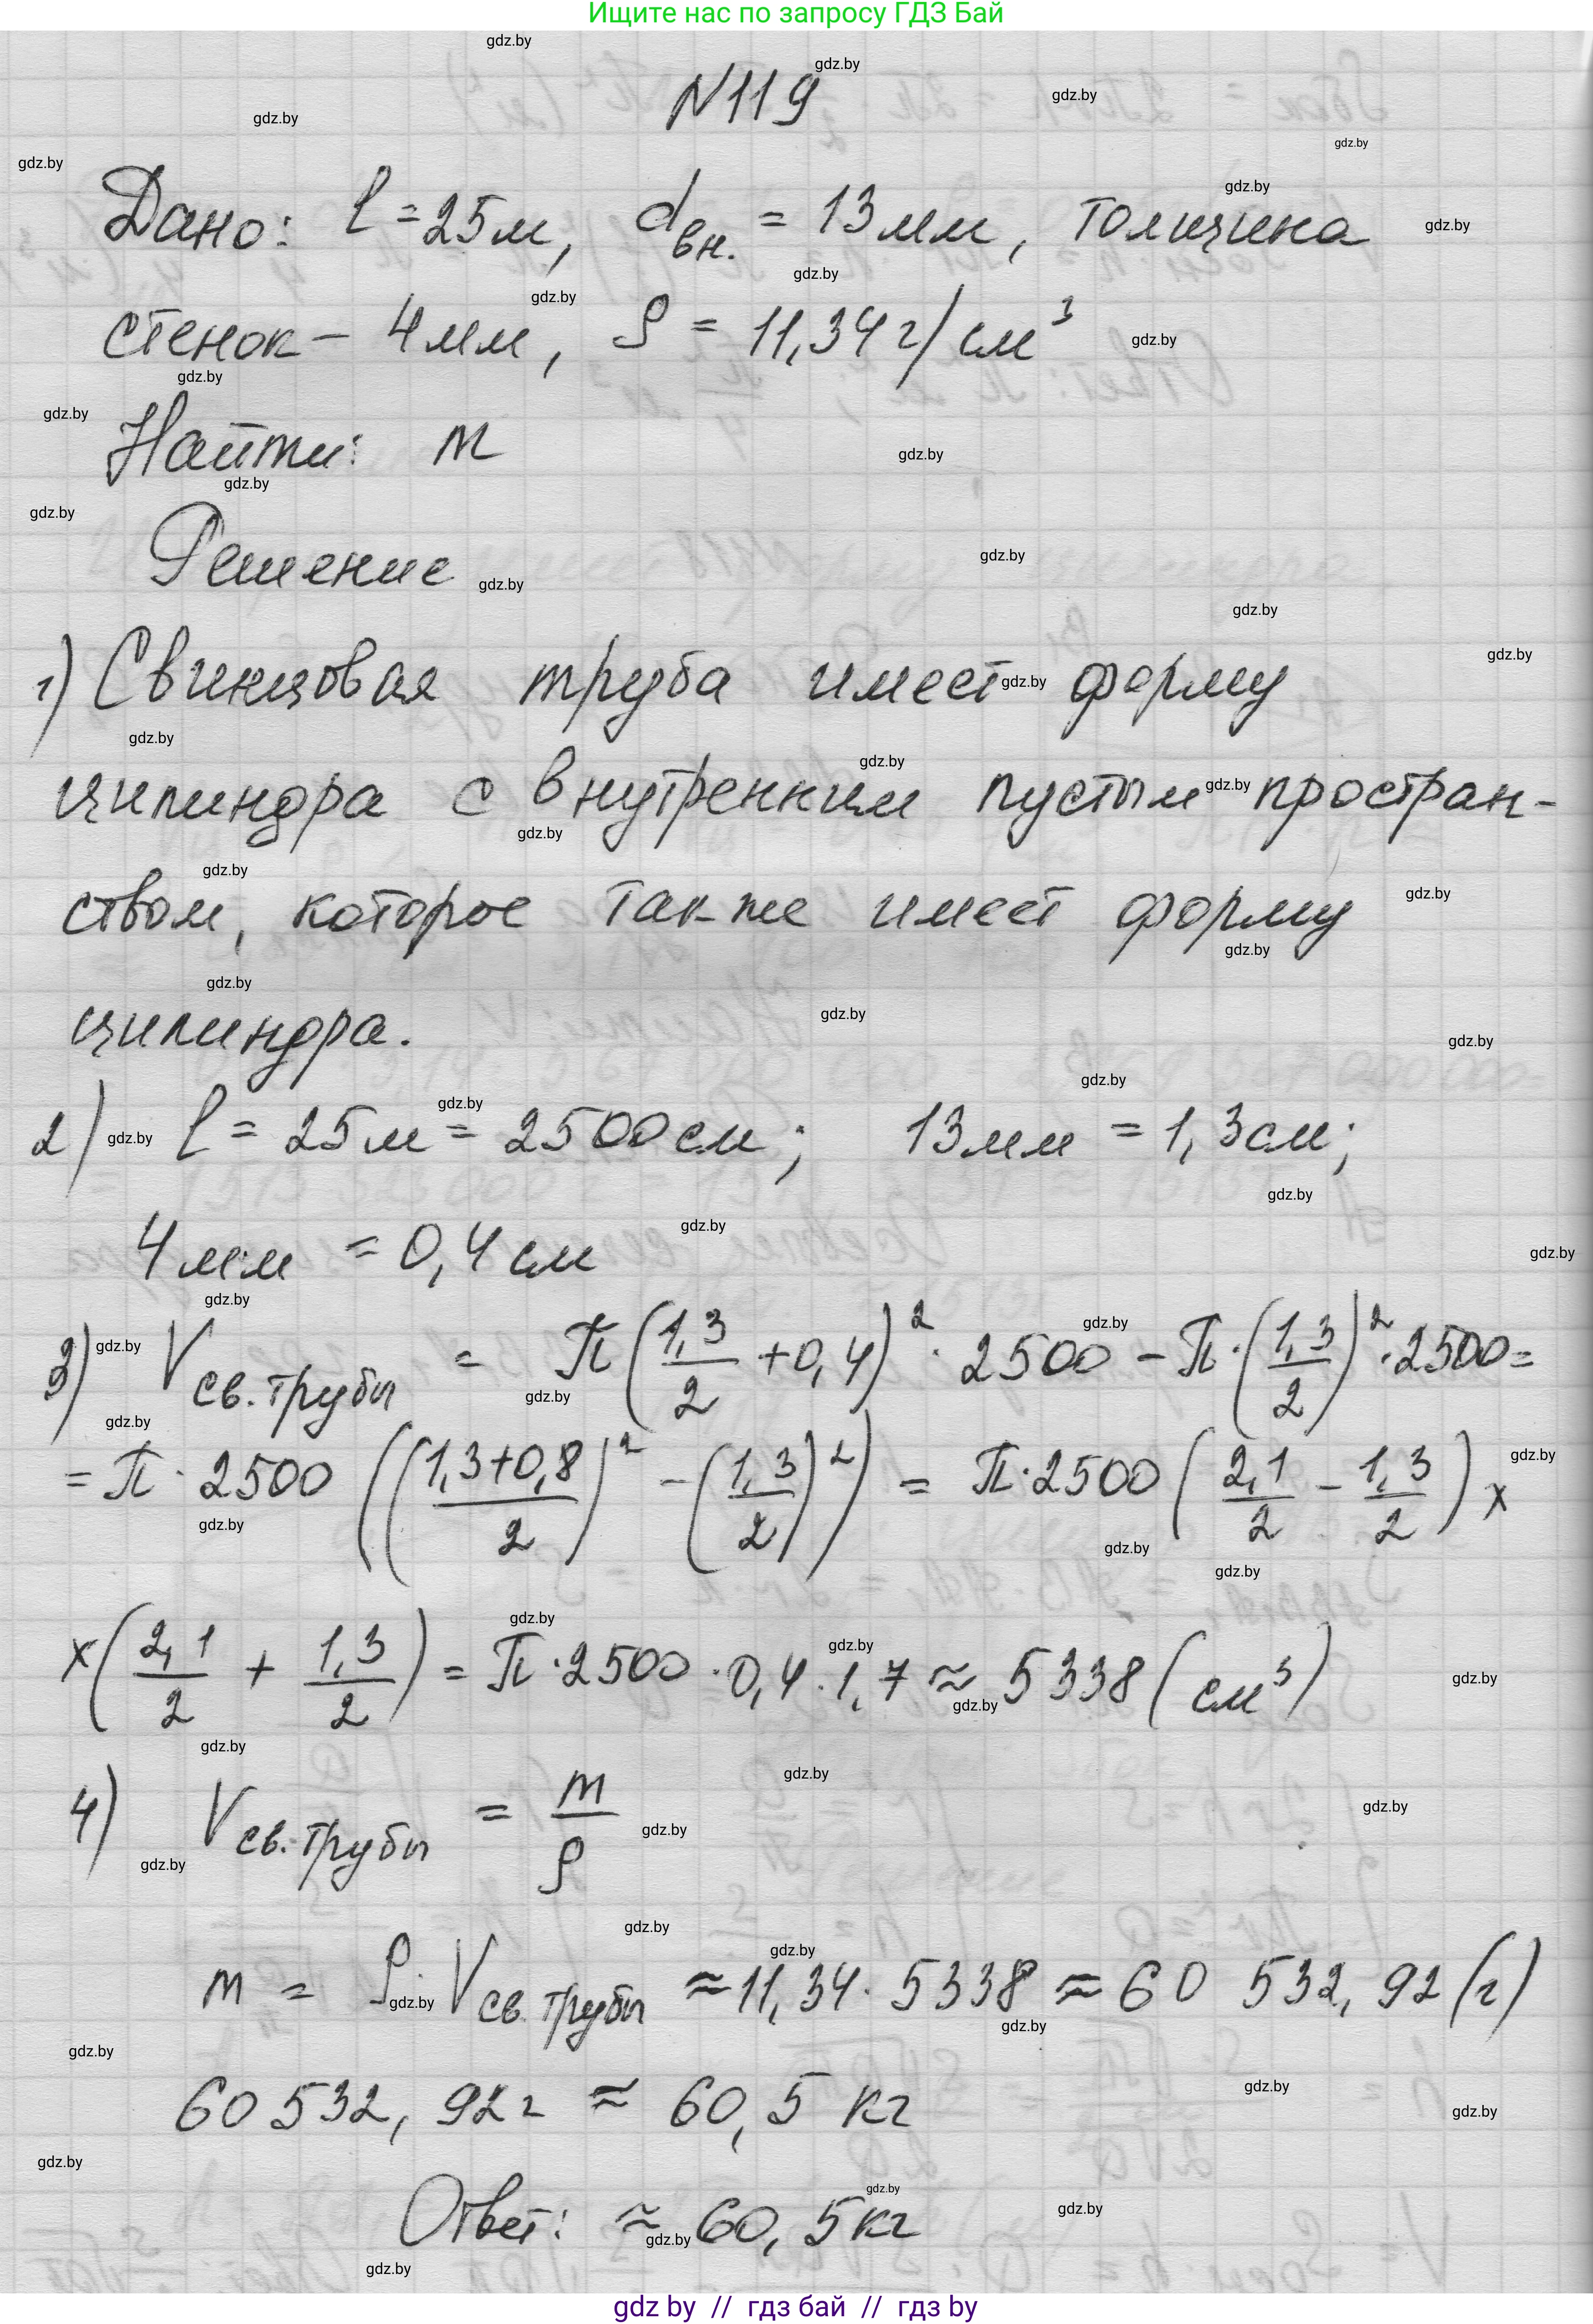 Ищите нас по запросу ГДЗ Бай
№119
Дано: l = 25м, dвн. = 13мм, толщина
стенок – 4мм, ρ = 11,34 г/см³
Найти: m
Решение
1) Свинцовая труба имеет форму
цилиндра с внутренним пустым простран-
ством, которое также имеет форму
цилиндра.
2) l = 25м = 2500см; 13мм = 1,3см;
4мм = 0,4см
3) Vсв.трубы = π(1,3/2 + 0,4)² · 2500 – π·(1,3/2)² · 2500 =
= π · 2500 (((1,3+0,8)/2)² – (1,3/2)²) = π·2500 (2,1/2 – 1,3/2) ×
×(2,1/2 + 1,3/2) = π·2500 · 0,4 · 1,7 ≈ 5338 (см³)
4) Vсв.трубы = m/ρ
m = ρ · Vсв.трубы ≈ 11,34 · 5338 ≈ 60 532,92 (г)
60 532,92г ≈ 60,5 кг
Ответ: ≈ 60,5кг
gdz by // гдз бай // гдз by